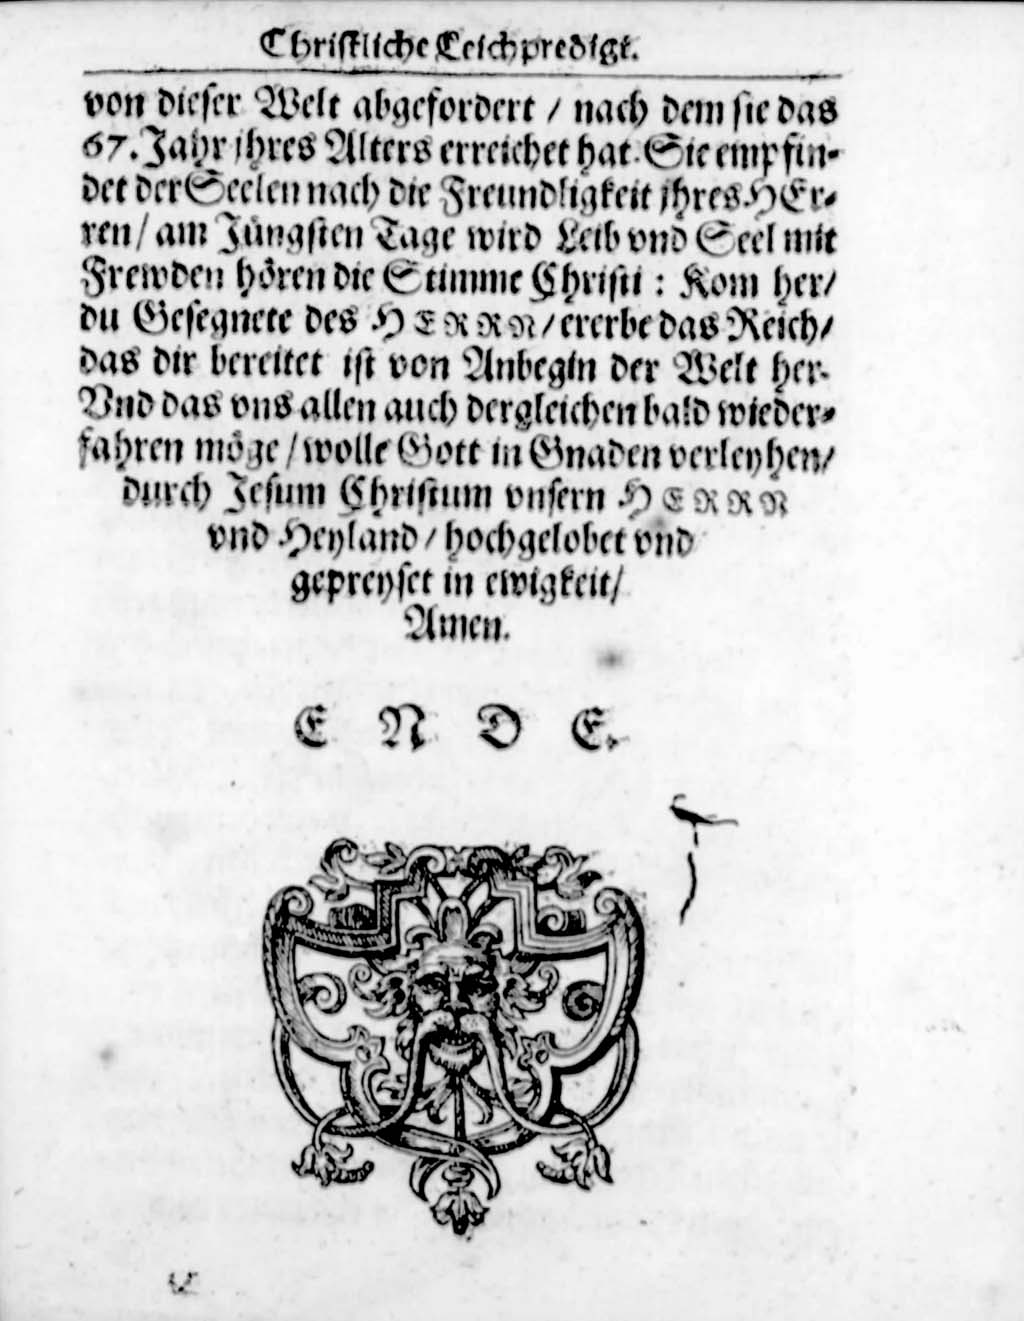 Christliche Leichpredigt.
von dieser Welt abgefordert / nach dem sie das
67. Jahr jhres Alters erreichet hat. Sie empfin-
det der Seelen nach die Freundligkeit jhres HEr-
ren / am Jüngsten Tage wird Leib vnd Seel mit
Frewden hören die Stimme Christi : Kom her /
du Gesegnete des HERRN / ererbe das Reich /
das dir bereitet ist von Anbegin der Welt her.
Vnd das vns allen auch dergleichen bald wieder-
fahren möge / wolle Gott in Gnaden verleyhen /
durch Jesum Christum vnsern HERRN
vnd Heyland / hochgelobet vnd
gepreyset in ewigkeit /
Amen.
E N D E.